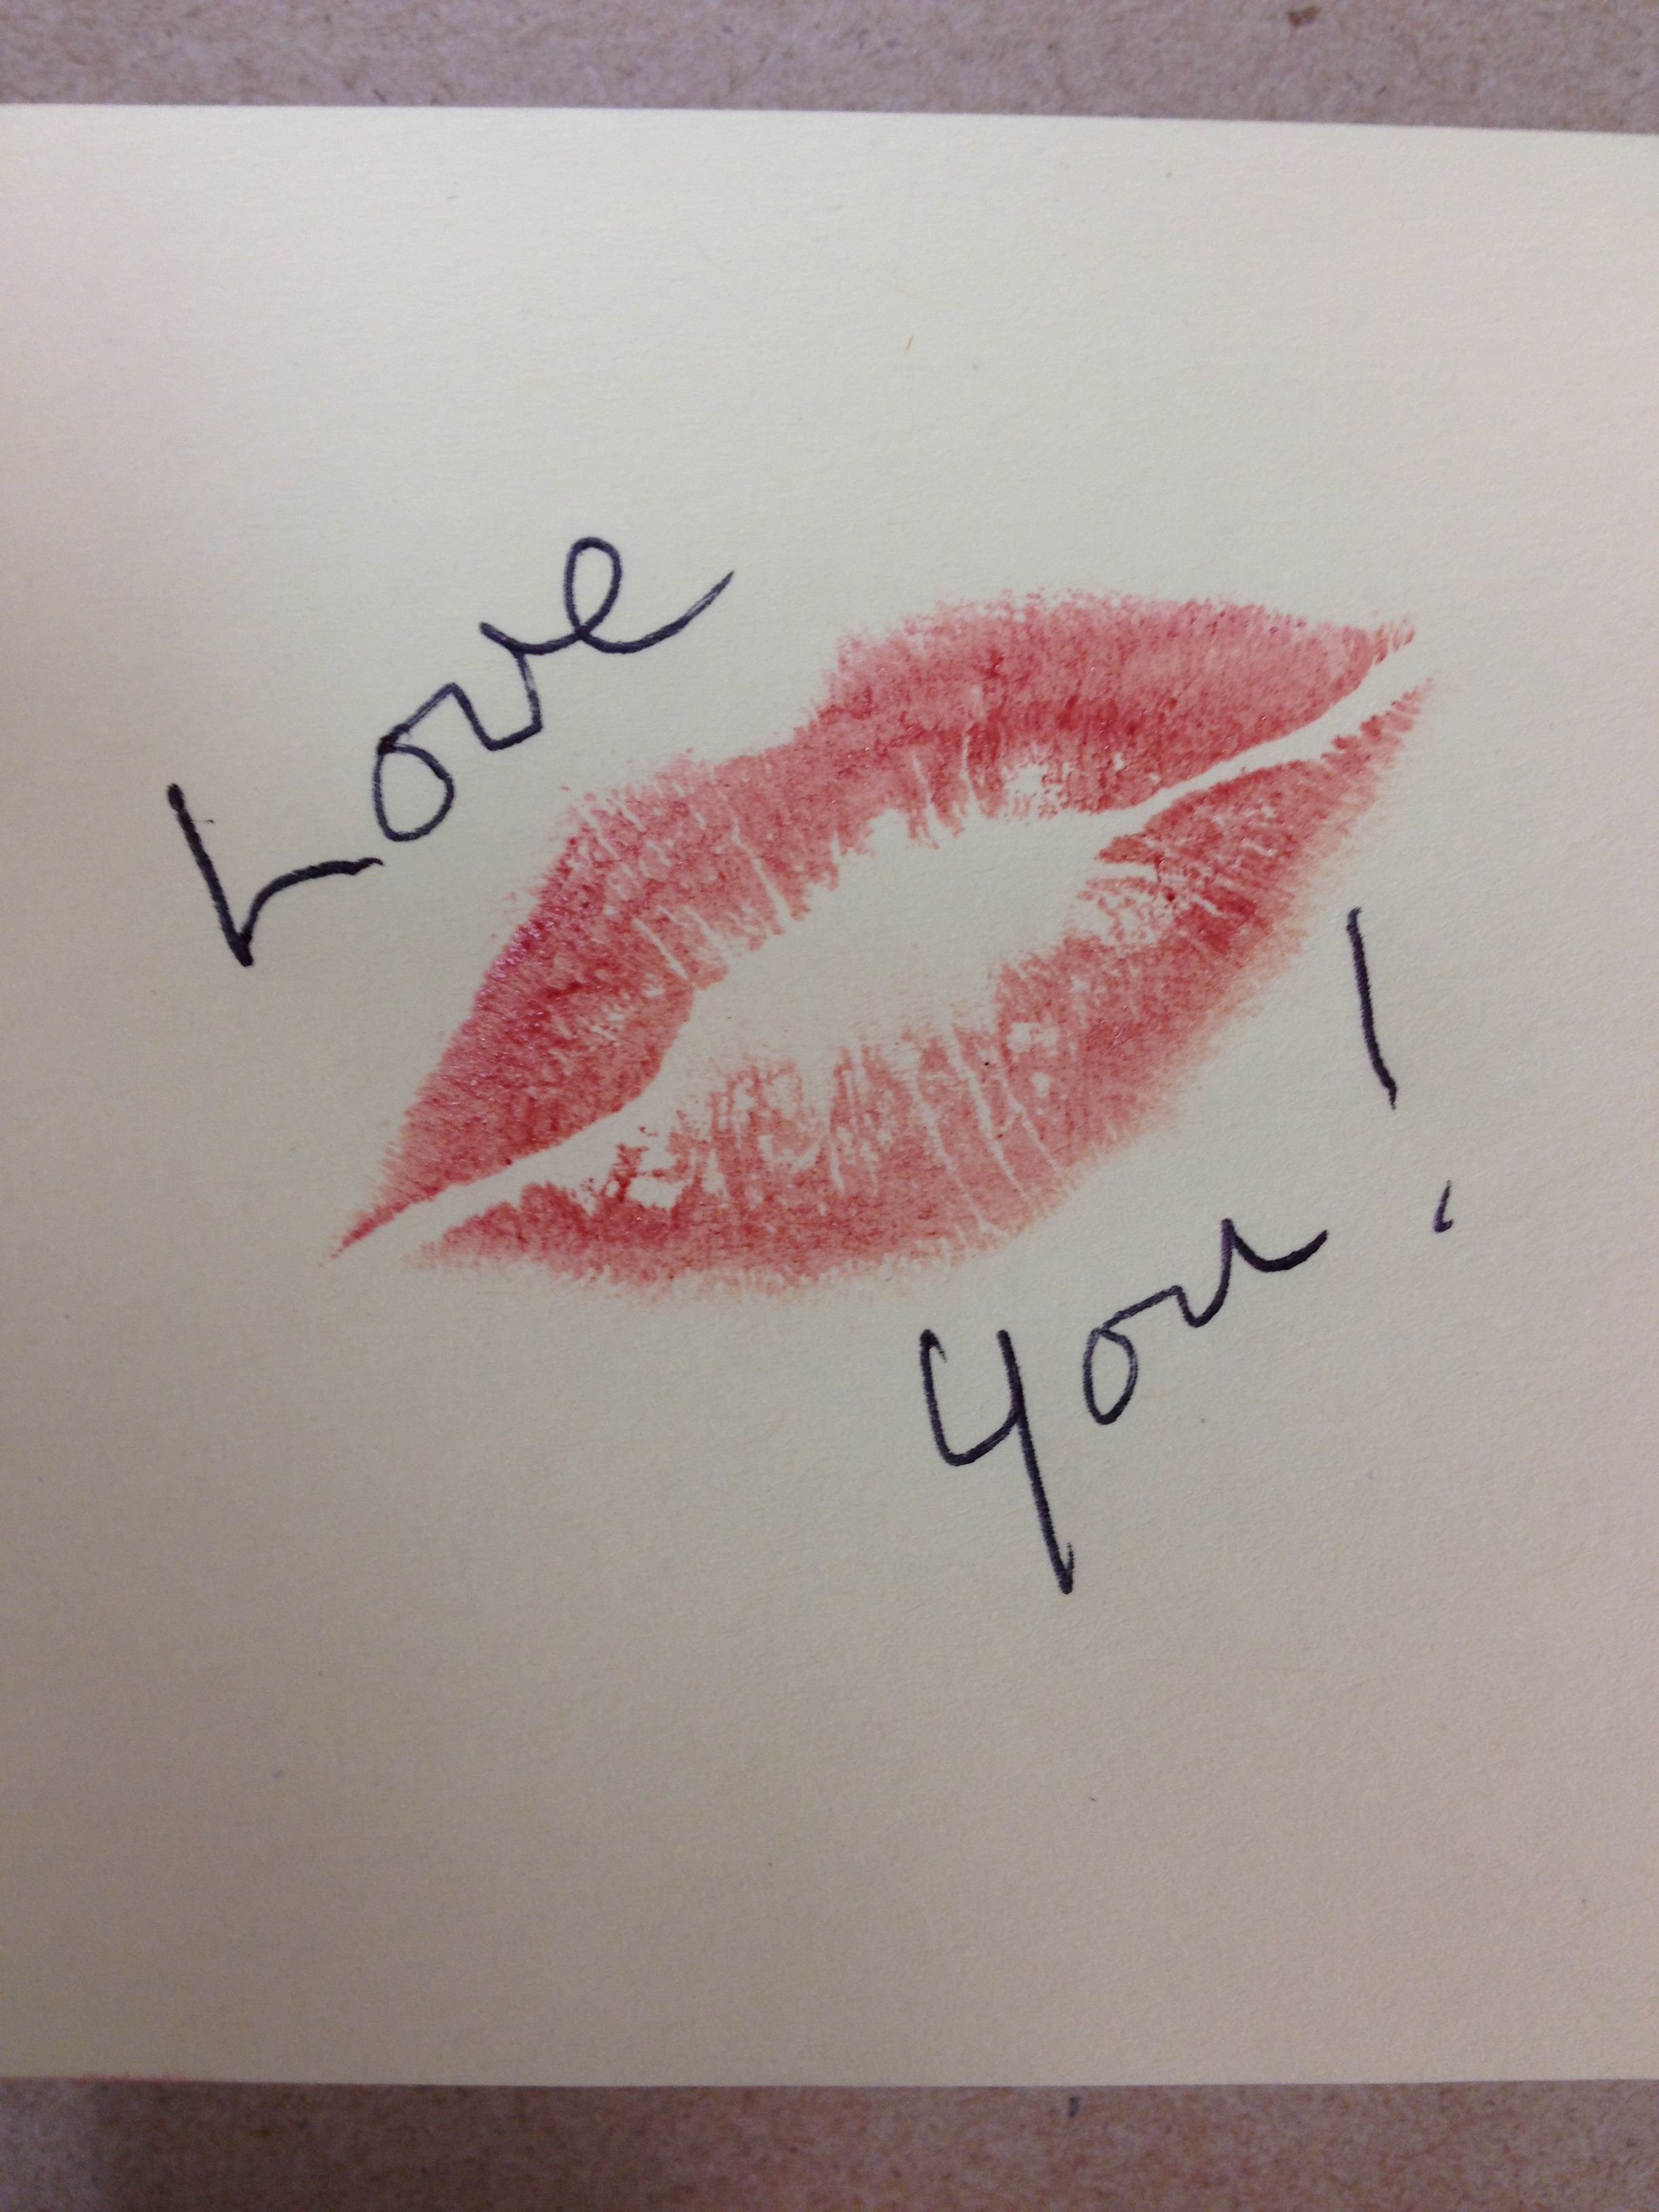 Love
you!